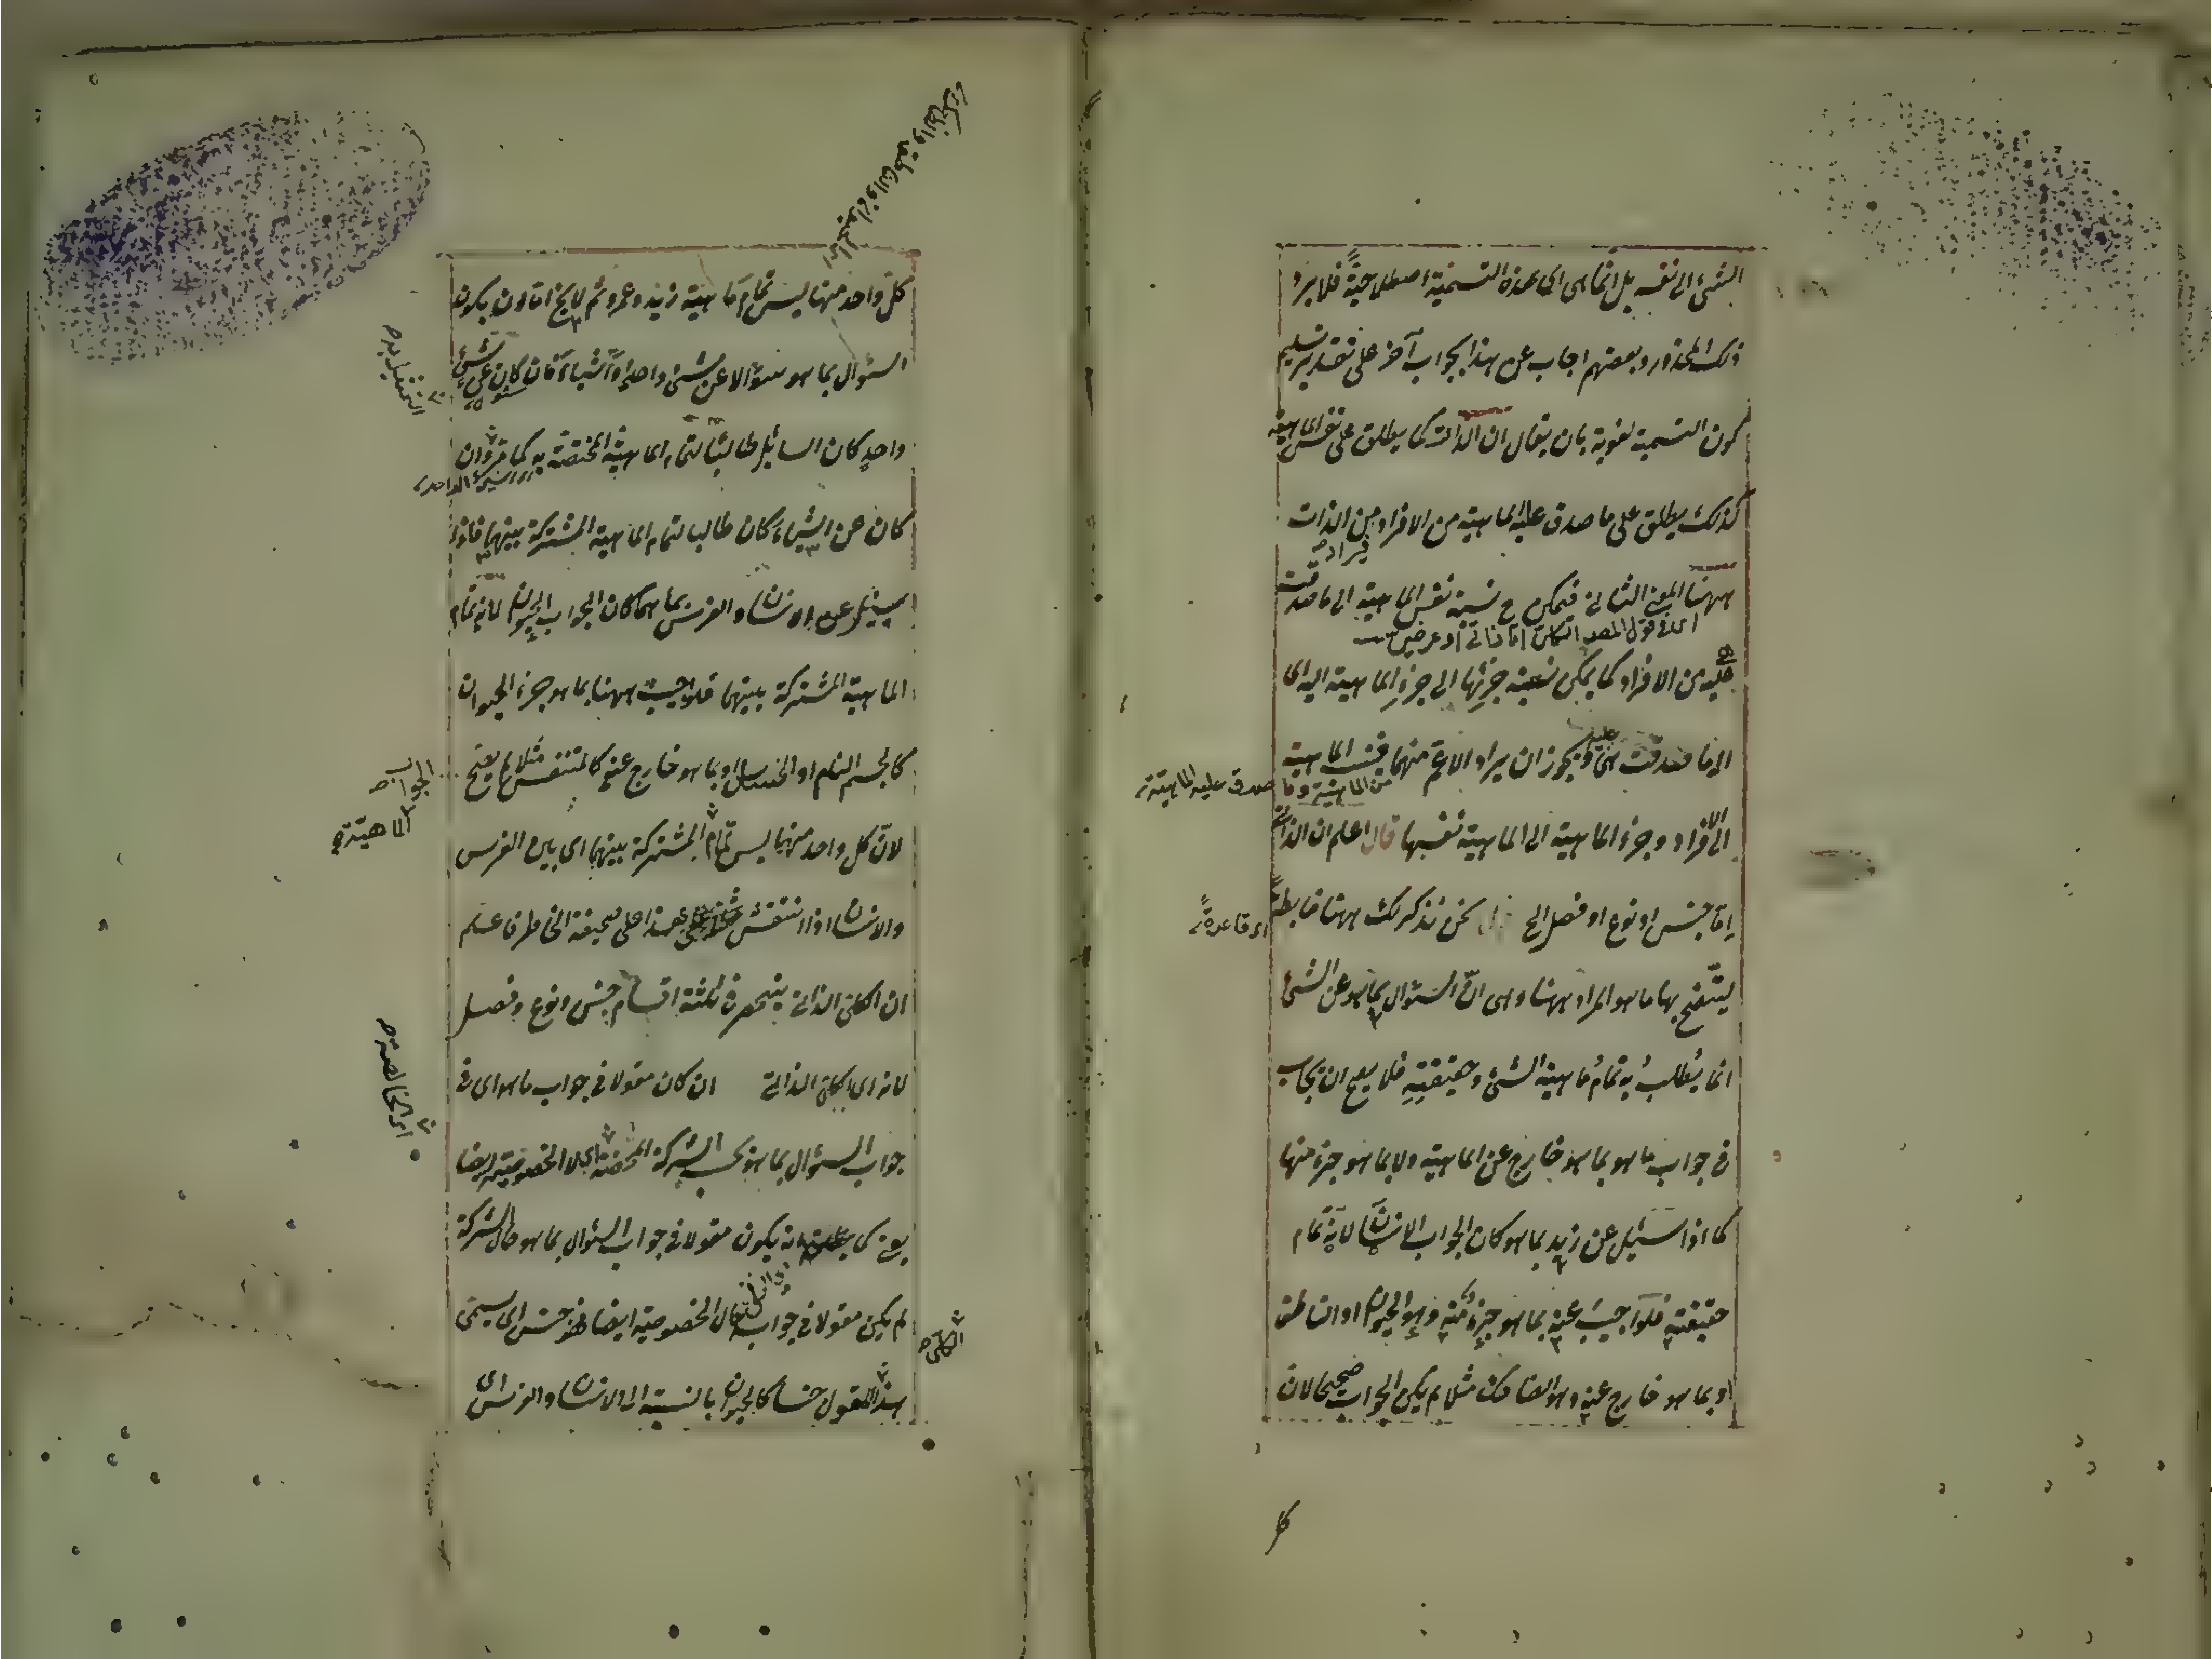 الشئ الى نفسه بل انما هى اى هذه التسمية اصطلاحية فلا يرد
ذلك المحذور وبعضهم اجاب عن هذا بجواب آخر على تقدير تسليم
كون التسمية لغوية بان يقال ان الذات كما يطلق على نفس الماهية
كذلك يطلق على ما صدق عليه الماهية من الافراد من الذات
فيراد
ههنا المعنى الثانى فيمكن ح نسبة نفس الماهية الى ما صدقت
اى فى قول المصر الكلى اما ذاتى او عرضى
عليه من الافراد كما يمكن نسبة جزئها الى جزء الماهية اليه اى
الى ما صدقت هى عليه ويجوز ان يراد الاعم منهما فينسب الماهية
من الماهية وما صدق عليه الماهية
الى الافراد وجزء الماهية الى الماهية نفسها قال اعلم ان الذاتى
اما جنس او نوع او فصل الخ نحن نذكر لك ههنا ضابطة
اى قاعدة
ليتضح بها ما هو المراد ههنا وهى ان السؤال بما هو عن الشئ
انما يُطلب به تمام ماهية الشئ وحقيقته فلا يصح ان يجاب
فى جواب ما هو بما هو خارج عن الماهية ولا بما هو جزء منها
كما اذا سئل عن زيد بما هو كان الجواب الانسان لانه تمام
حقيقته فلو اجيب عنه بما هو جزء منه وهو الحيوان او الناطق
او بما هو خارج عنه وهو الضاحك مثلا لم يكن الجواب صحيحا لان
كل
اى الحيوان والناطق والضاحك
كل واحد منها ليس تمام ماهية زيد وعمرو ثم لا يخ اما ان يكون
السؤال بما هو سؤالا عن شئ واحد او اشياء فان كان عن شئ
التفصيل
واحد كان السائل طالبا لتمام الماهية المختصة به كما مر وان
الشئ الواحد
كان عن اشياء كان طالبا لتمام الماهية المشتركة بينهما فاذا
سئل عن الانسان والفرس بما هما كان الجواب الحيوان لانه تمام
الماهية المشتركة بينهما فلو اجيب ههنا بما هو جزء الحيوان
كالجسم النام او الحساس او بما هو خارج عنه كالمتنفس مثلا لم يصح
الجواب
لان كل واحد منهما ليس تمام المشتركة بينهما اى بين الفرس
الماهية
والانسان اذا انتقش هذا على صحيفة الخاطر فاعلم
ان الكلى الذاتى ينحصر فى ثلثة اقسام جنس ونوع وفصل
لانه اى الكلى الذاتى ان كان مقولا فى جواب ما هو اى فى
اى الخالصة
جواب السؤال بما هو بحسب الشركة المحضة اى لا الخصوصية ايضا
يعنى كما انه يكون مقولا فى جواب السؤال بما هو حال الشركة
لم يكن مقولا فى جواب السؤال حال الخصوصية ايضا فهو جنس اى يسمى
الكلى
هذا المقول جنسا كالحيوان بالنسبة الى الانسان والفرس اى